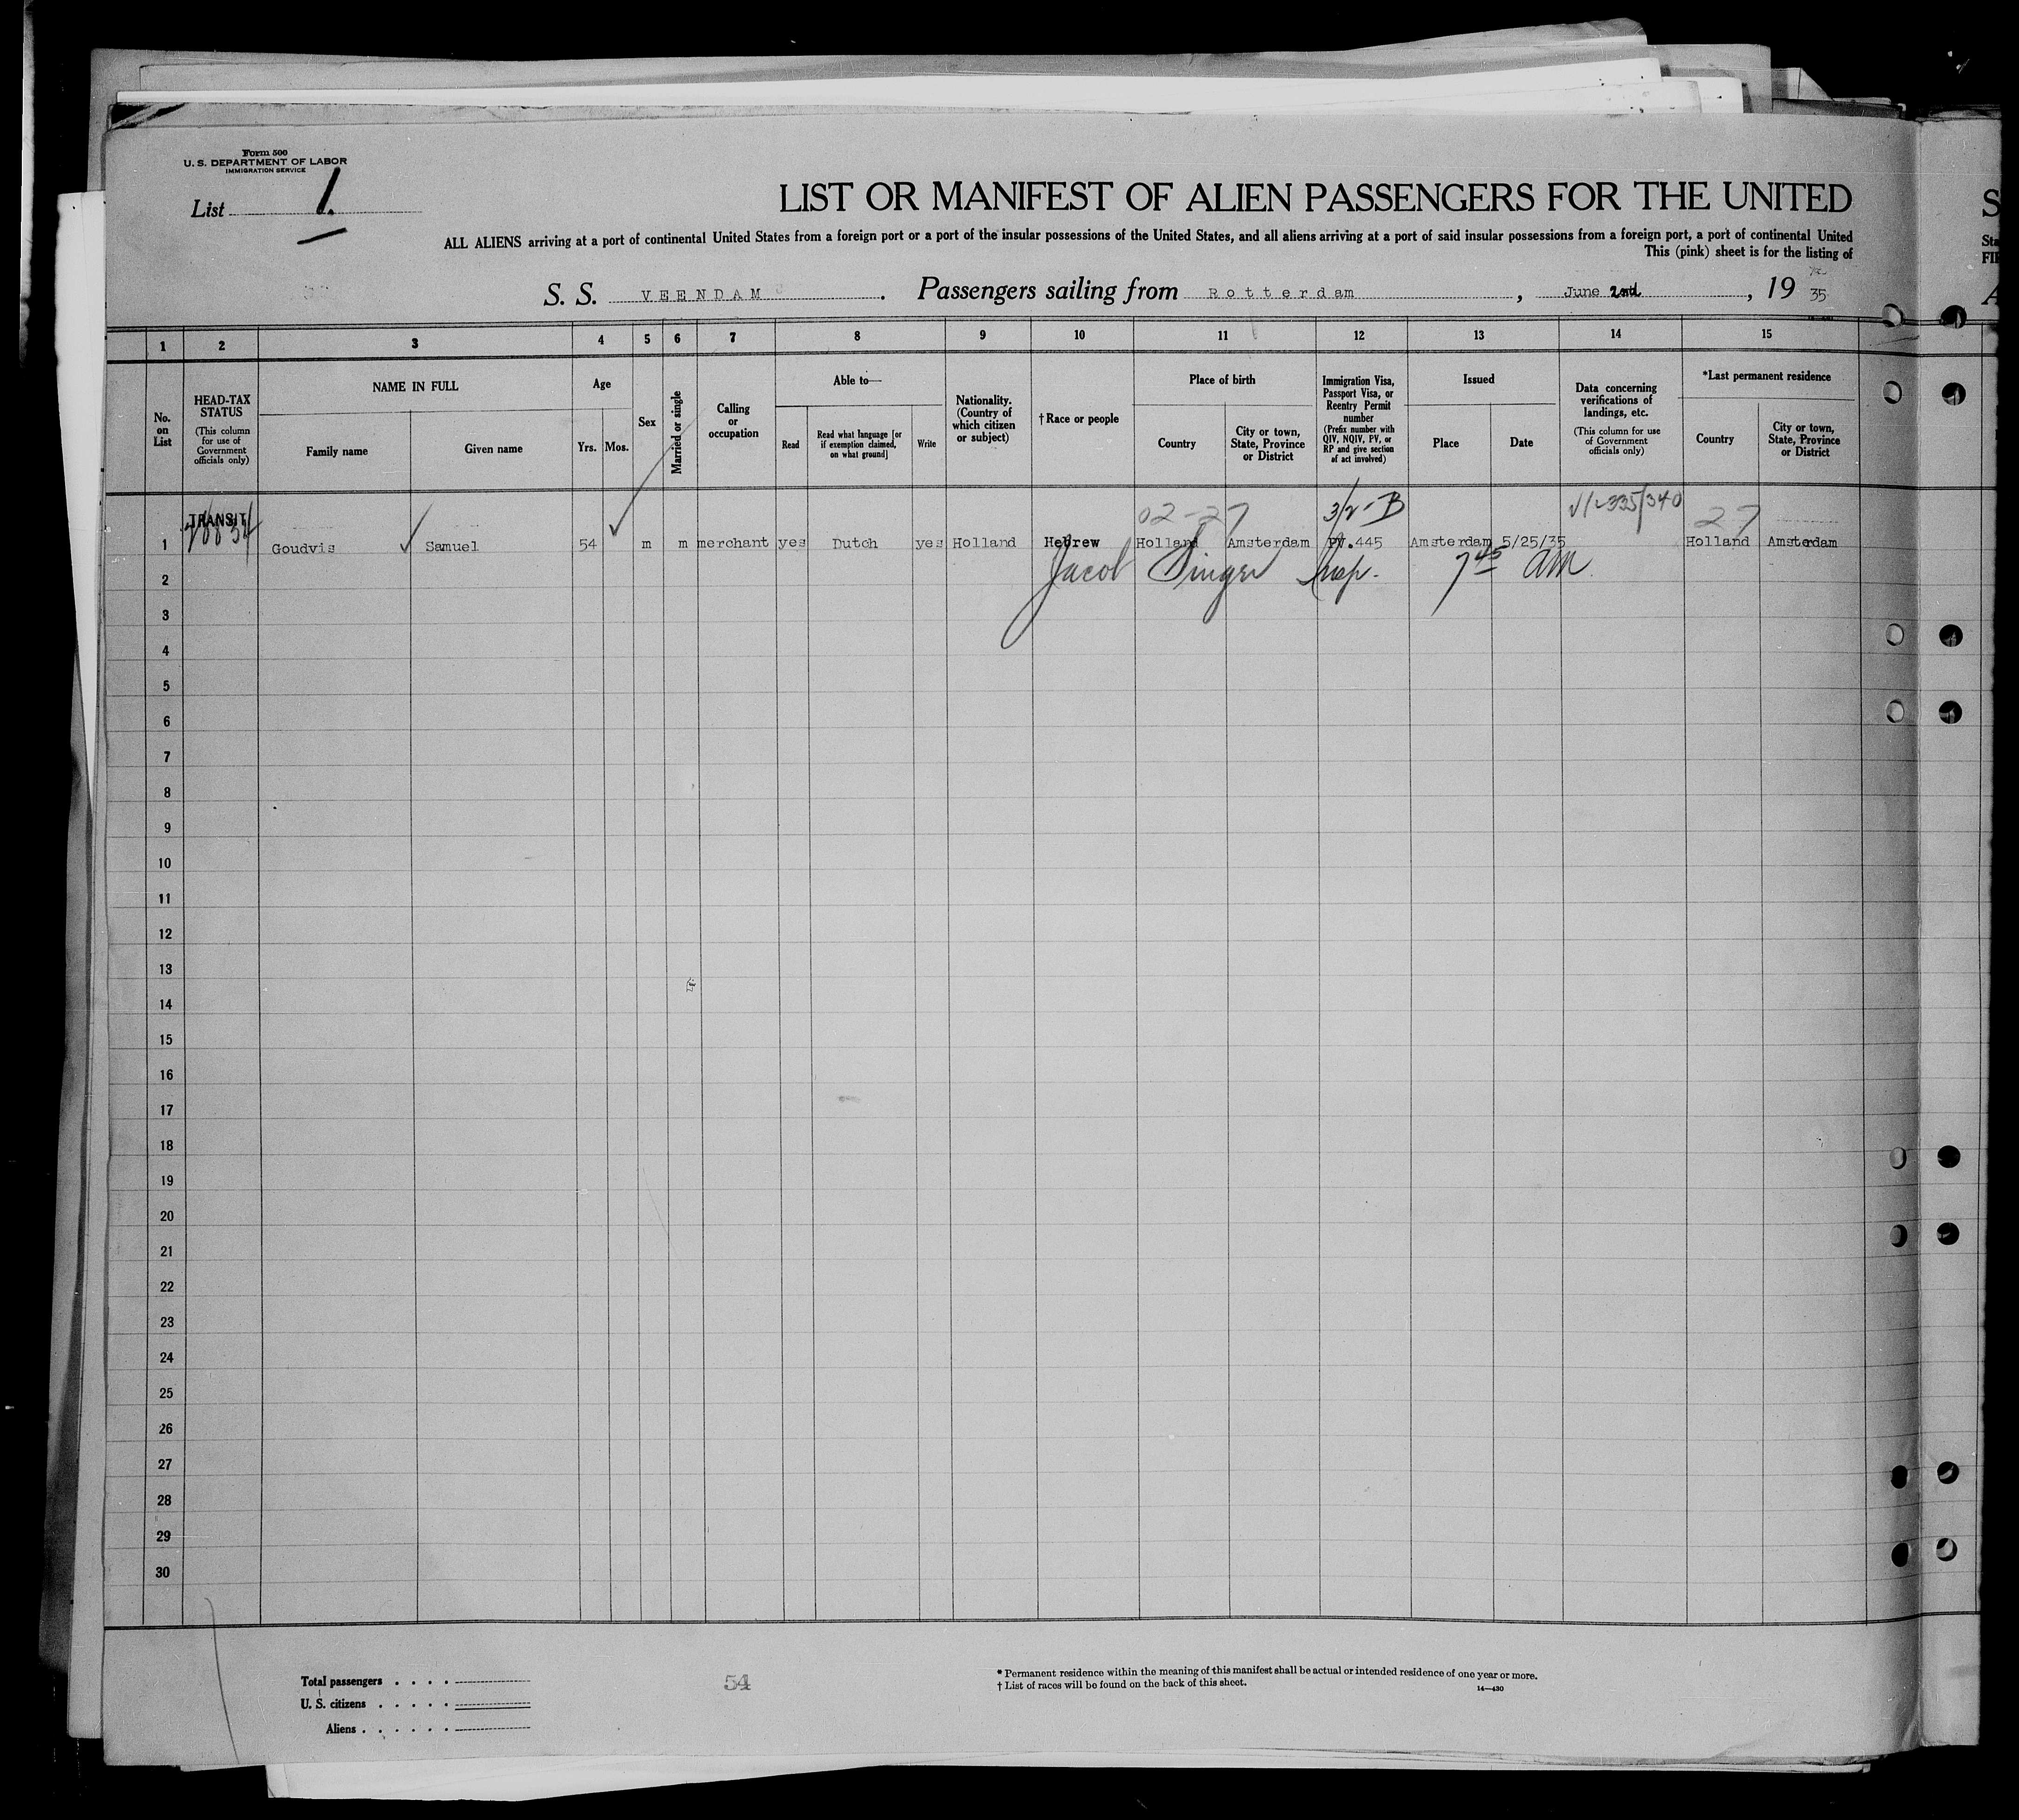 Form 500
U. S. DEPARTMENT OF LABOR
IMMIGRATION SERVICE
List 1.
LIST OR MANIFEST OF ALIEN PASSENGERS FOR THE UNITED
ALL ALIENS arriving at a port of continental United States from a foreign port or a port of the insular possessions of the United States, and all aliens arriving at a port of said insular possessions from a foreign port, a port of continental United
This (pink) sheet is for the listing of
S. S. VEENDAM. Passengers sailing from Rotterdam, June 2nd, 19 35
1 2 3 4 5 6 7 8 9 10 11 12 13 14 15
No. on List
HEAD-TAX STATUS
(This column for use of Government officials only)
NAME IN FULL
Family name
Given name
Age
Yrs.
Mos.
Sex
Married or single
Calling or occupation
Able to—
Read
Read what language [or if exemption claimed, on what ground]
Write
Nationality. (Country of which citizen or subject)
†Race or people
Place of birth
Country
City or town, State, Province or District
Immigration Visa, Passport Visa, or Reentry Permit number
(Prefix number with QIV, NQIV, PV, or RP and give section of act involved)
Issued
Place
Date
Data concerning verifications of landings, etc.
(This column for use of Government officials only)
*Last permanent residence
Country
City or town, State, Province or District
TRANSIT 02-27 3/2-B 27
1 Goudvis Samuel 54 m m merchant yes Dutch yes Holland Hebrew Holland Amsterdam PV.445 Amsterdam 5/25/35 Holland Amsterdam
2 Jacob Singer Insp. 7 45 AM
3
4
5
6
7
8
9
10
11
12
13
14
15
16
17
18
19
20
21
22
23
24
25
26
27
28
29
30
Total passengers . . . .
U. S. citizens . . . . .
Aliens . . . . . .
54
* Permanent residence within the meaning of this manifest shall be actual or intended residence of one year or more.
† List of races will be found on the back of this sheet.
14—430